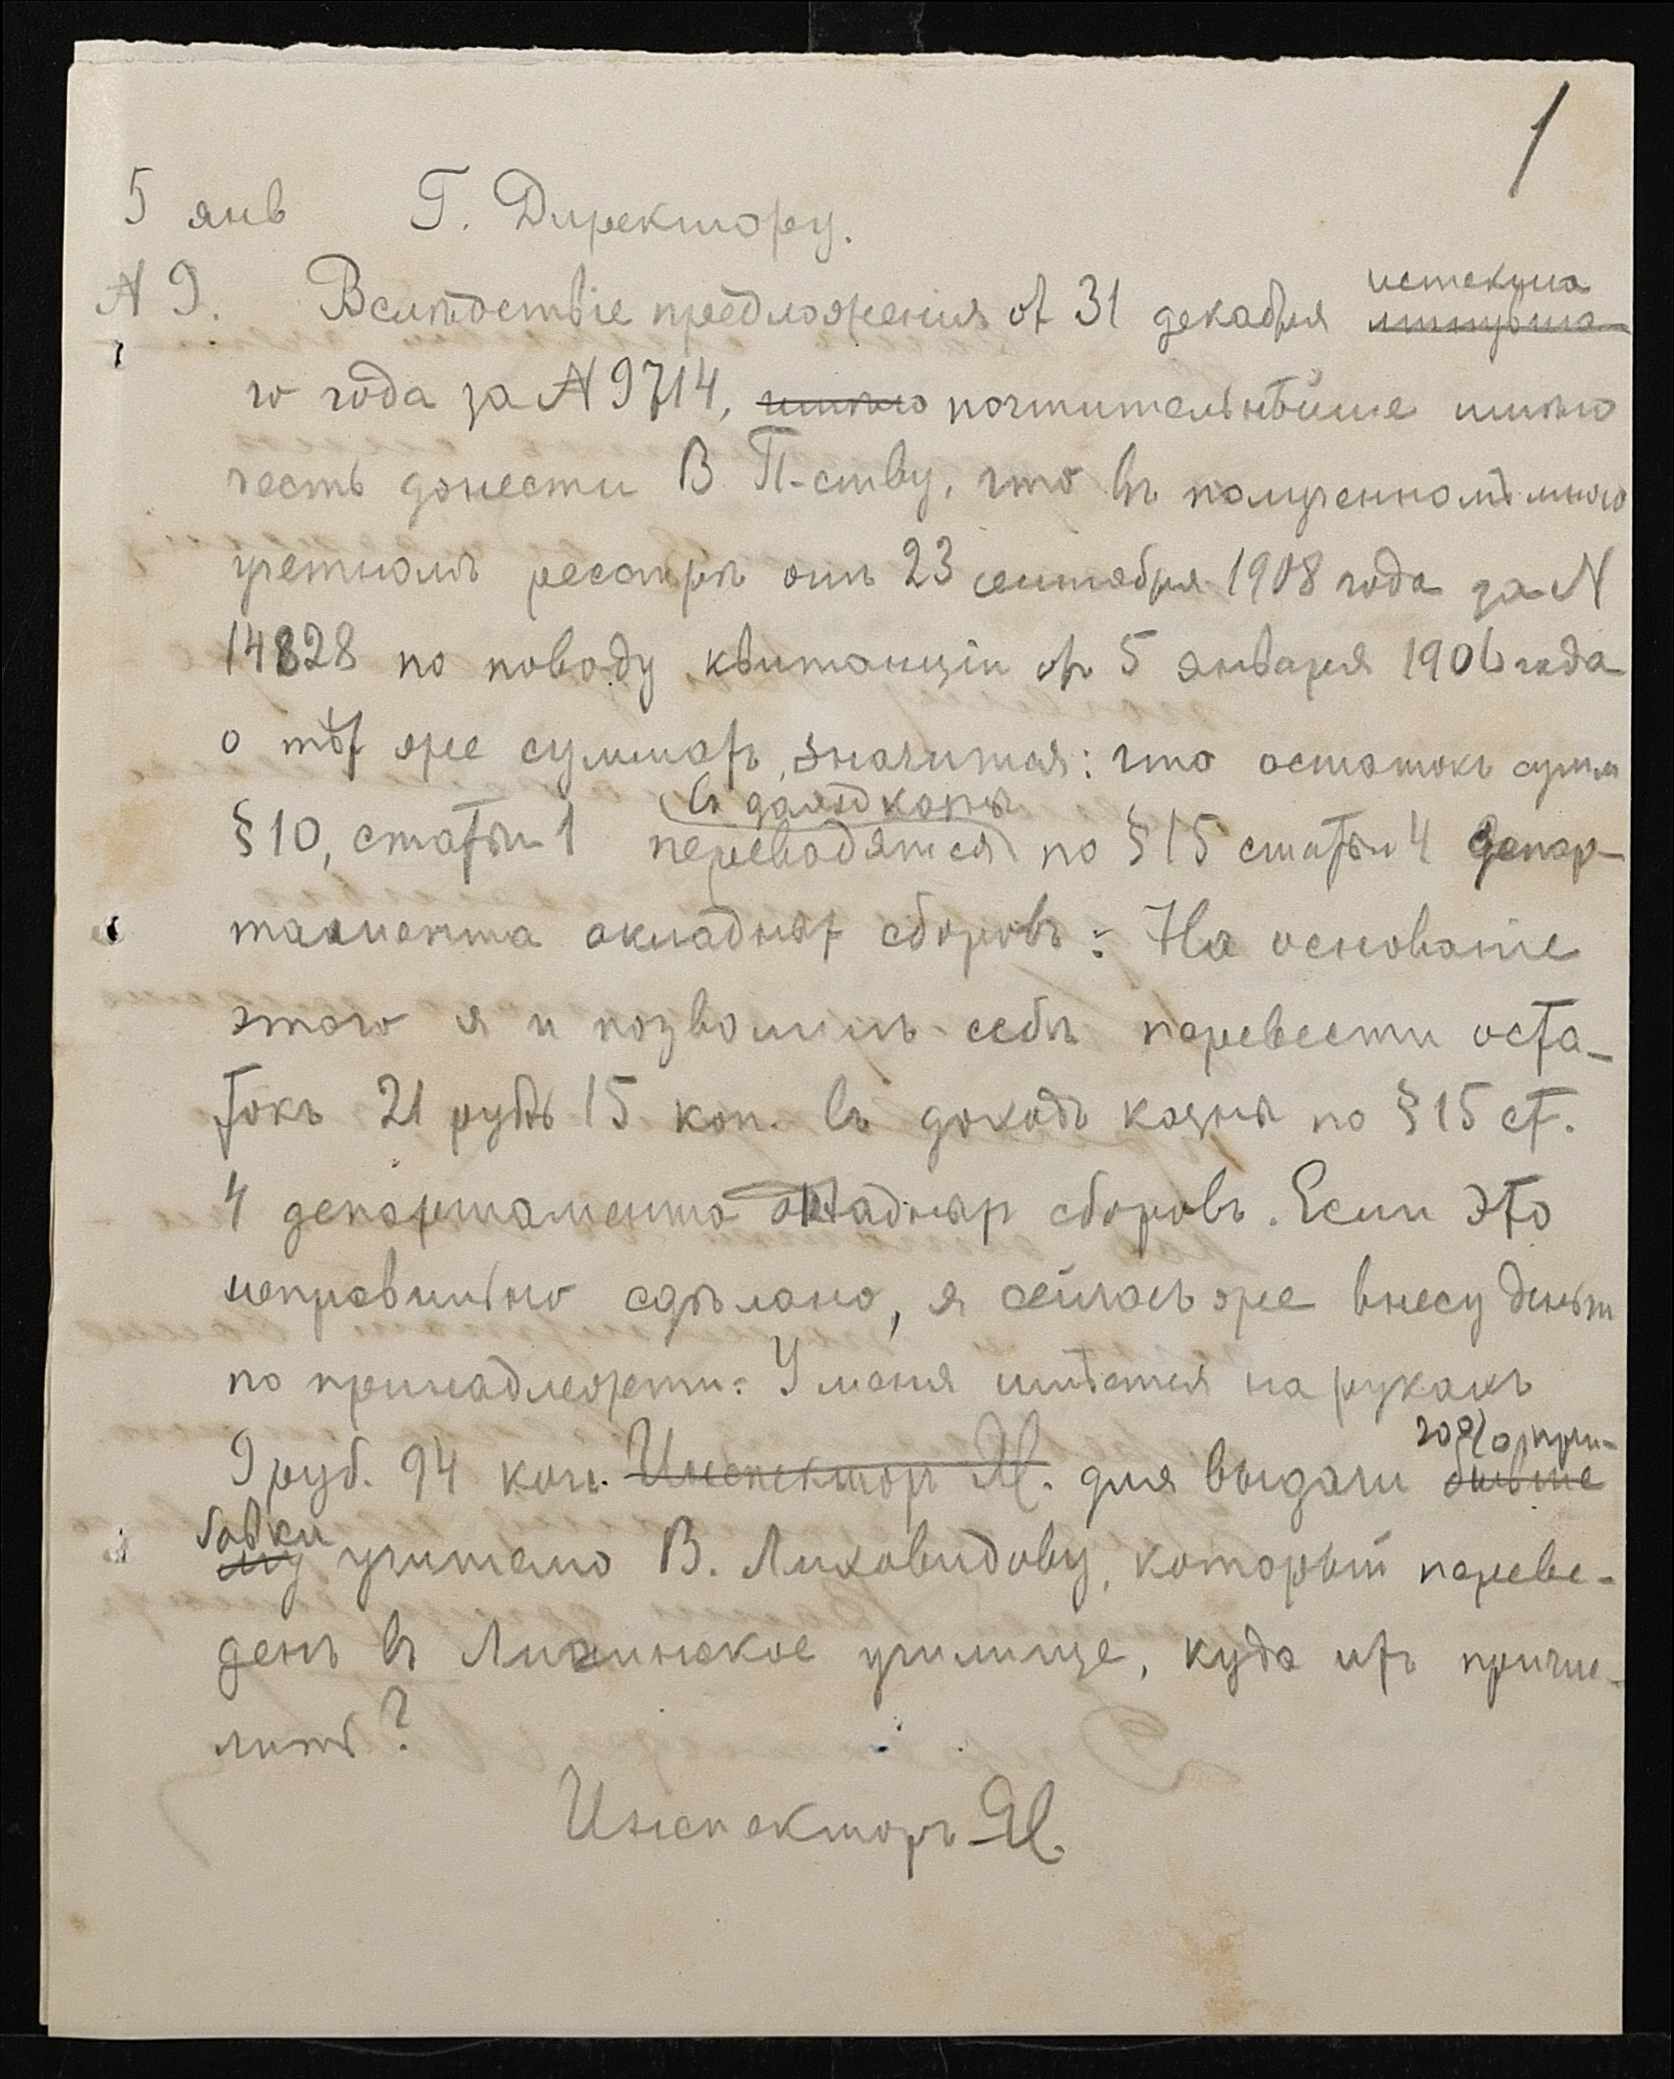 1
5 янв Г. Директору.
№ 9. Вслѣдствіе предложенія от 31 декабря минувша
истекша
го года за № 9714, имѣю почтительнѣйше имѣю
честь донести В. П-ству, что въ полученномъ мною
учетномъ реестрѣ отъ 23 сентября 1908 года за №
14828 по поводу квитанціи от 5 января 1906 года
о тѣх же суммахъ, значится: что остатокъ сумм
въ доход казны
§ 10, статьи 1 переводятся по § 15 статьи 4 депар-
тамента окладных сборовъ: На основаніе
этого я и позволилъ себѣ перевести оста-
токъ 21 рубль 15 коп. въ доходъ казны по § 15 ст.
4 департамента окладных сборовъ. Если это
неправильно сдѣлано, я сейчасъ же внесу деньги
по принадлежности: У меня имѣется на рукахъ
9 руб. 94 коп. Инспекторъ М. для выдачи бывше
20% при-
бавки
му учителю В. Лиховидову, который переве-
денъ въ училище, куда ихъ причис-
лить?
Инспекторъ М.